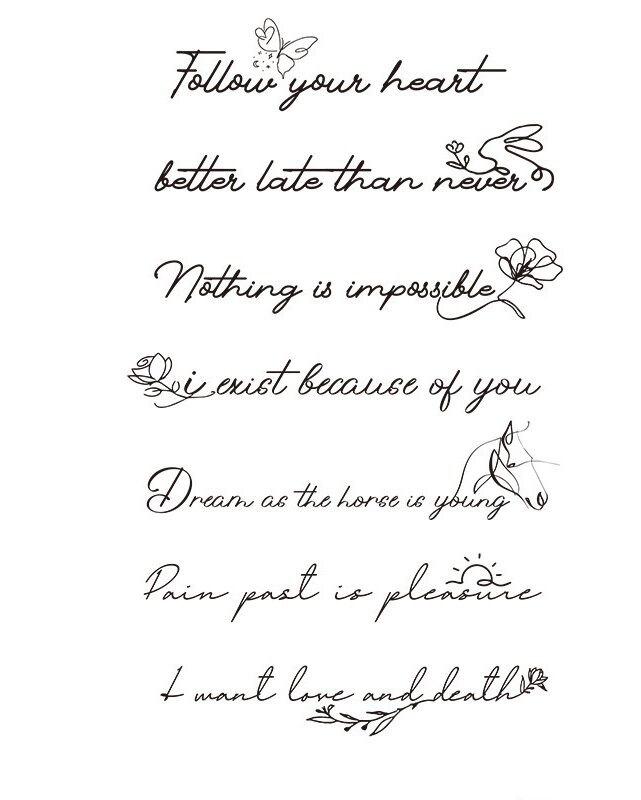 Follow your heart
better late than never
Nothing is impossible
i exist because of you
Dream as the horse is young
Pain past is pleasure
I want love and death